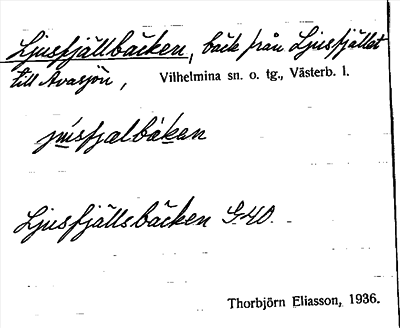 Ljusfjällbäcken, bäck från Ljusfjället
till Avasjön, Vilhelmina sn. o. tg., Västerb. l.
jʉ́sfjalbäkan
Ljusfjällsbäcken G.40.
Thorbjörn Eliasson, 1936.